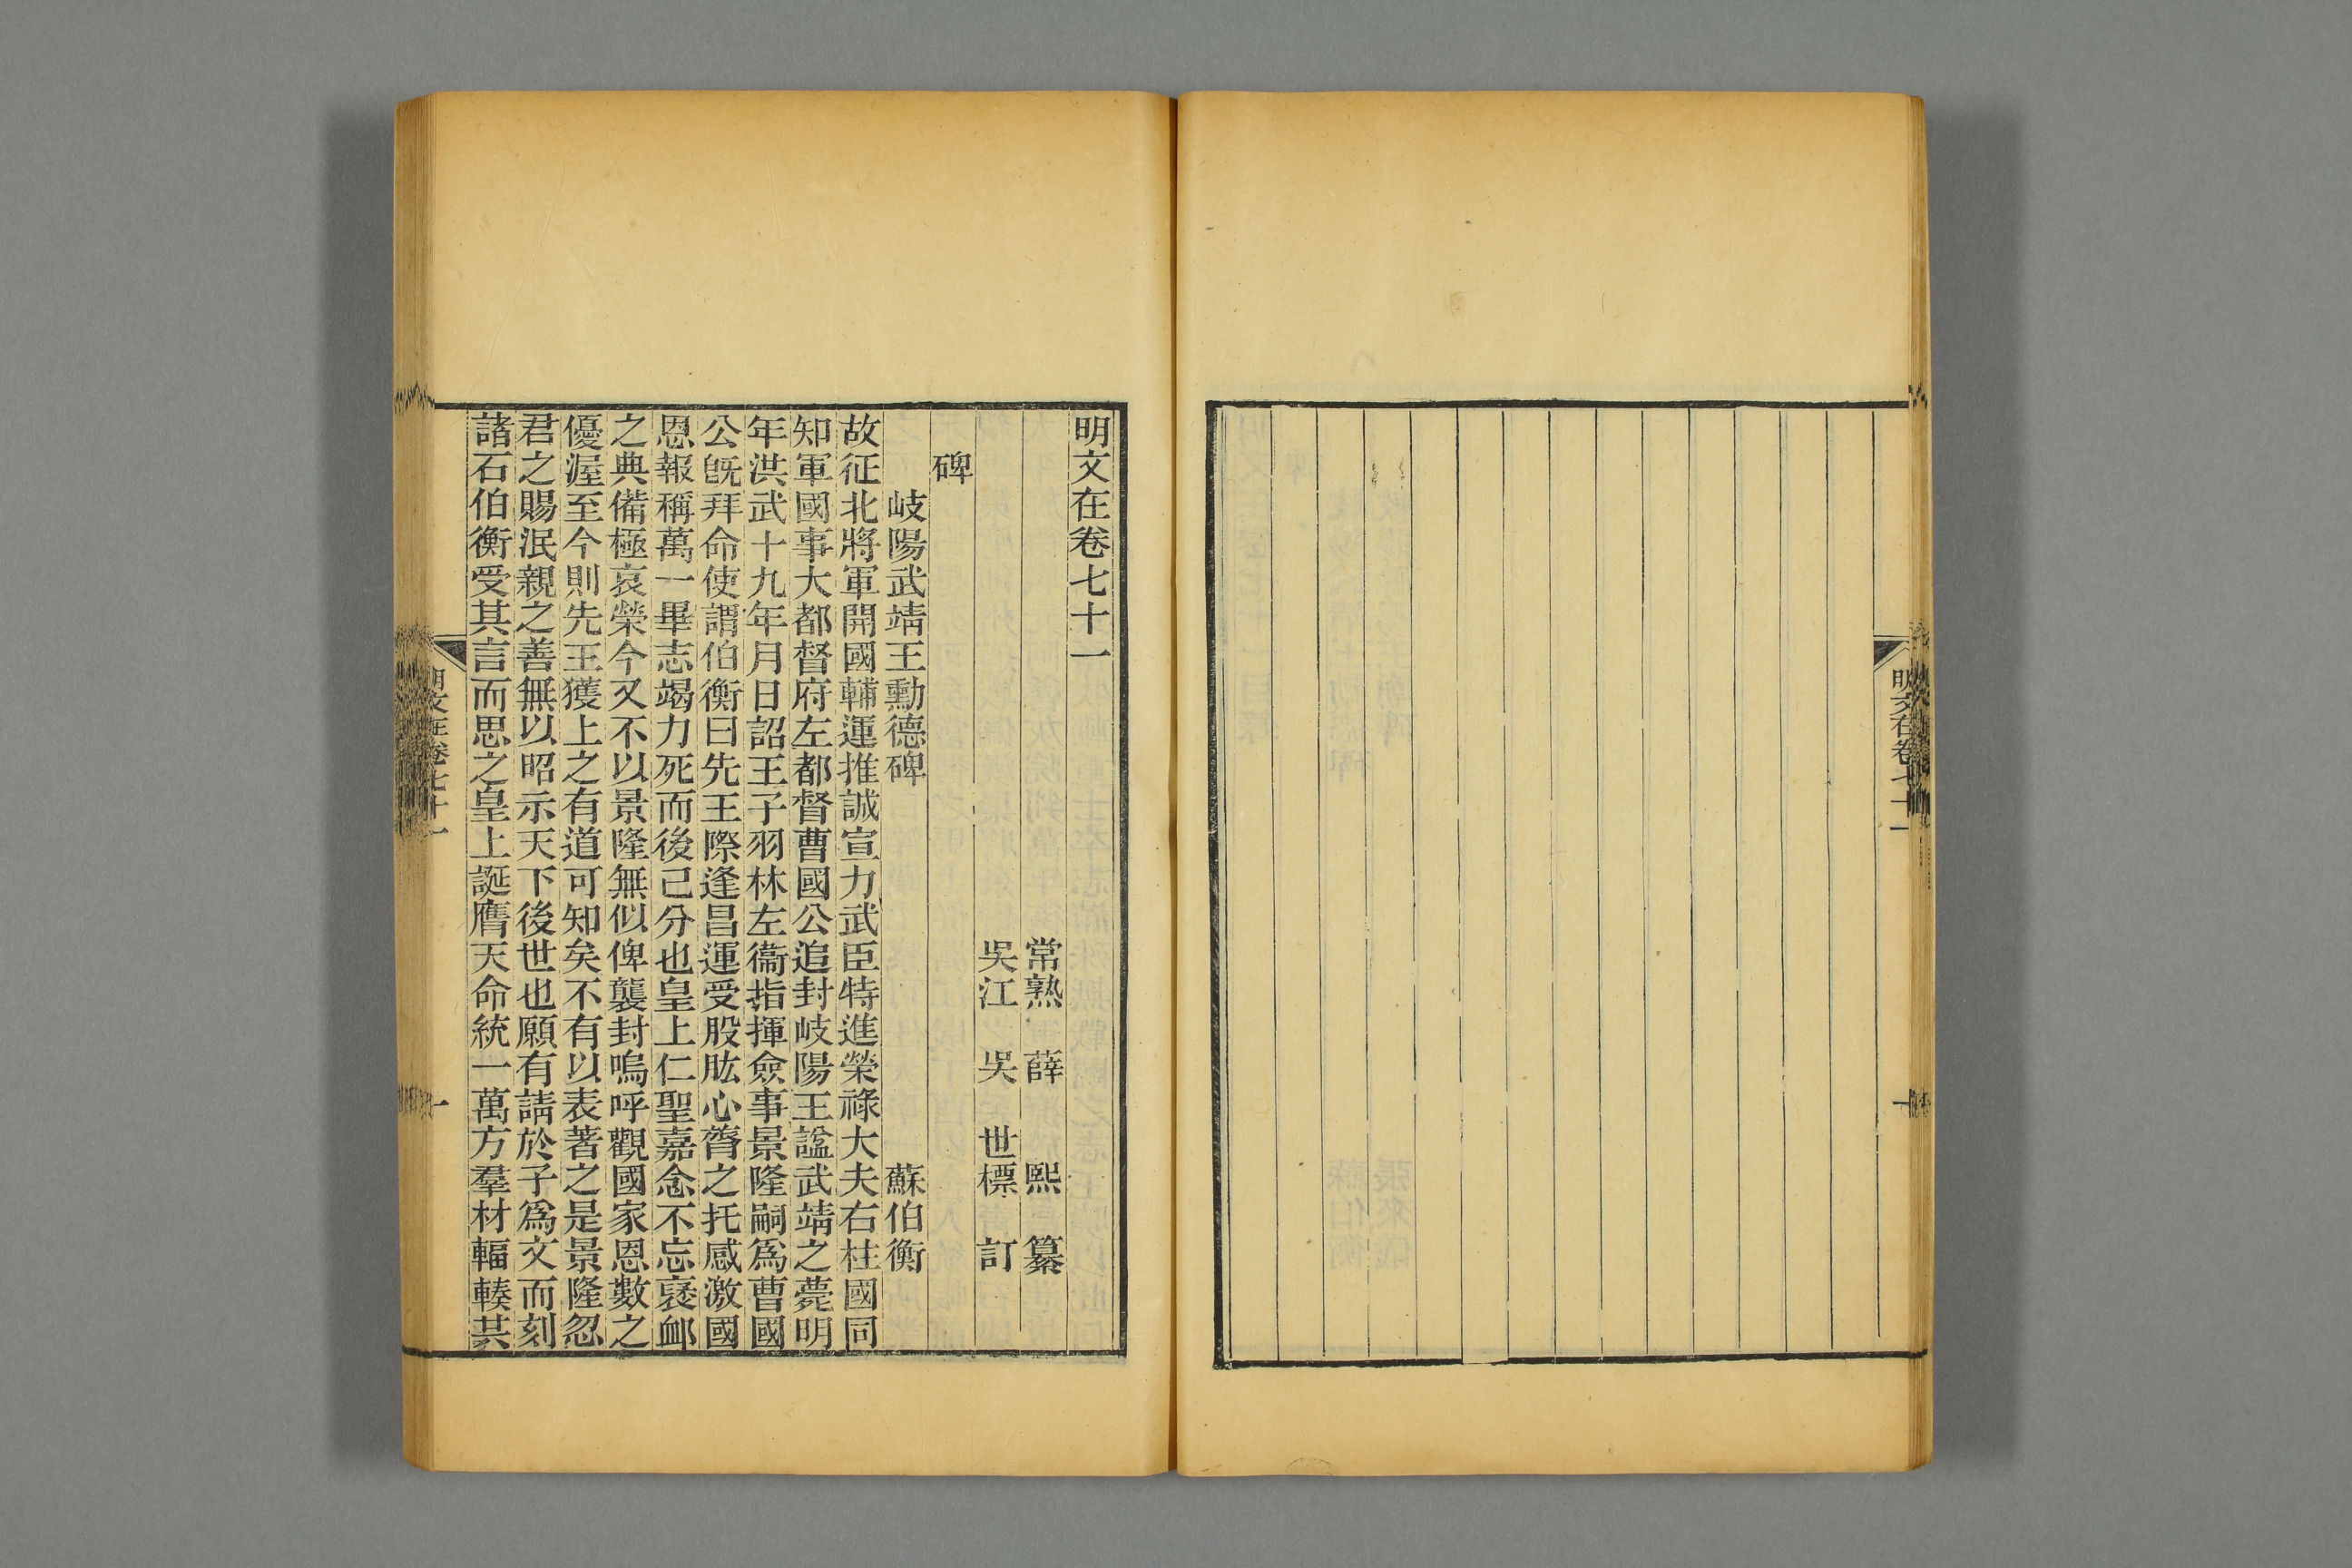 明文在卷七十一
一
明文在卷七十一
常熟 薛 熙 纂
吳江 吳 世標 訂
碑
岐陽武靖王勳德碑 蘇伯衡
故征北將軍開國輔運推誠宣力武臣特進榮祿大夫右柱國同
知軍國事大都督府左都督曹國公追封岐陽王諡武靖之薨明
年洪武十九年月日詔王子羽林左衞指揮僉事景隆嗣爲曹國
公旣拜命使謂伯衡曰先王際逢昌運受股肱心膂之托感激國
恩報稱萬一畢志竭力死而後己分也皇上仁聖嘉念不忘襃卹
之典備極哀榮今又不以景隆無似俾襲封嗚呼觀國家恩數之
優渥至今則先王獲上之有道可知矣不有以表著之是景隆忍
君之賜泯親之善無以昭示天下後世也願有請於子爲文而刻
諸石伯衡受其言而思之皇上誕膺天命統一萬方羣材輻輳其
明文在卷七十一
一